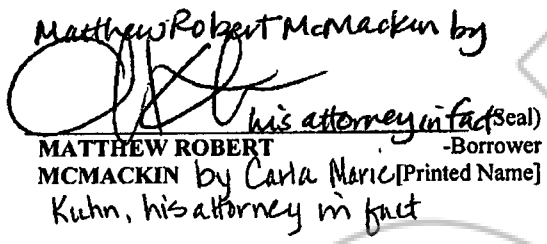 Matthew Robert McMackin by
his attorney in fact (Seal)
MATTHEW ROBERT -Borrower
MCMACKIN by Carla Marie [Printed Name]
Kuhn, his attorney in fact